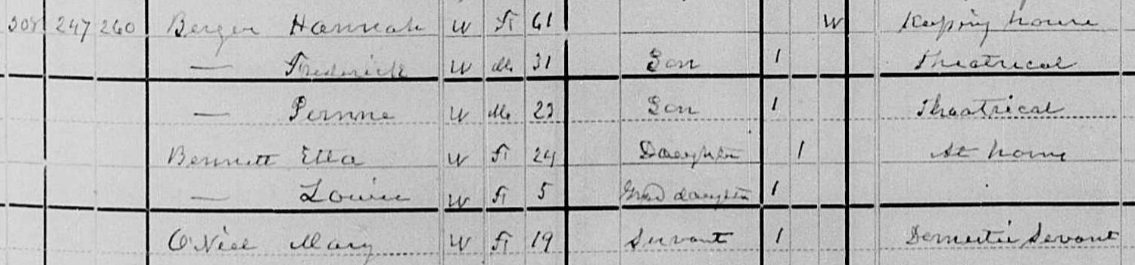 308 247 260 Berger Hannah W F 61 W Keeping house
— Frederick W M 31 Son 1 Theatrical
— W M 23 Son 1 Theatrical
Bennett Etta W F 24 Daughter 1 At home
— Louise W F 5 Grand daughter 1
O'Neil Mary W F 19 Servant 1 Domestic Servant